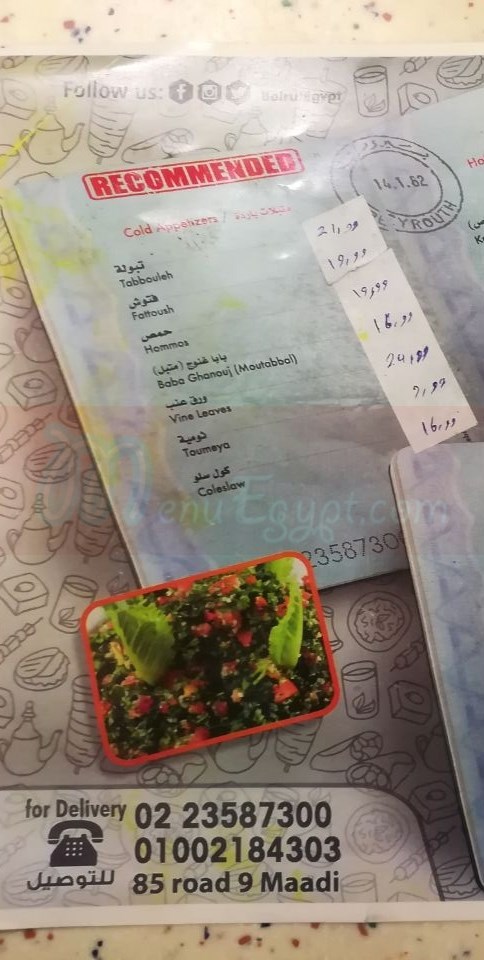 Follow us: BeiruEgypt
RECOMMENDED
Cold Appetizers / مقبلات باردة
14.1.62
BEYROUTH
تبولة
Tabbouleh
21,99
فتوش
Fattoush
19,99
حمص
Hommos
19,99
بابا غنوج (متبل)
Baba Ghanouj (Moutabbal)
16,99
ورق عنب
Vine Leaves
24,99
تومية
Toumeya
9,99
كول سلو
Coleslaw
16,99
MenuEgypt.com
2358730
for Delivery 02 23587300
01002184303
للتوصيل 85 road 9 Maadi